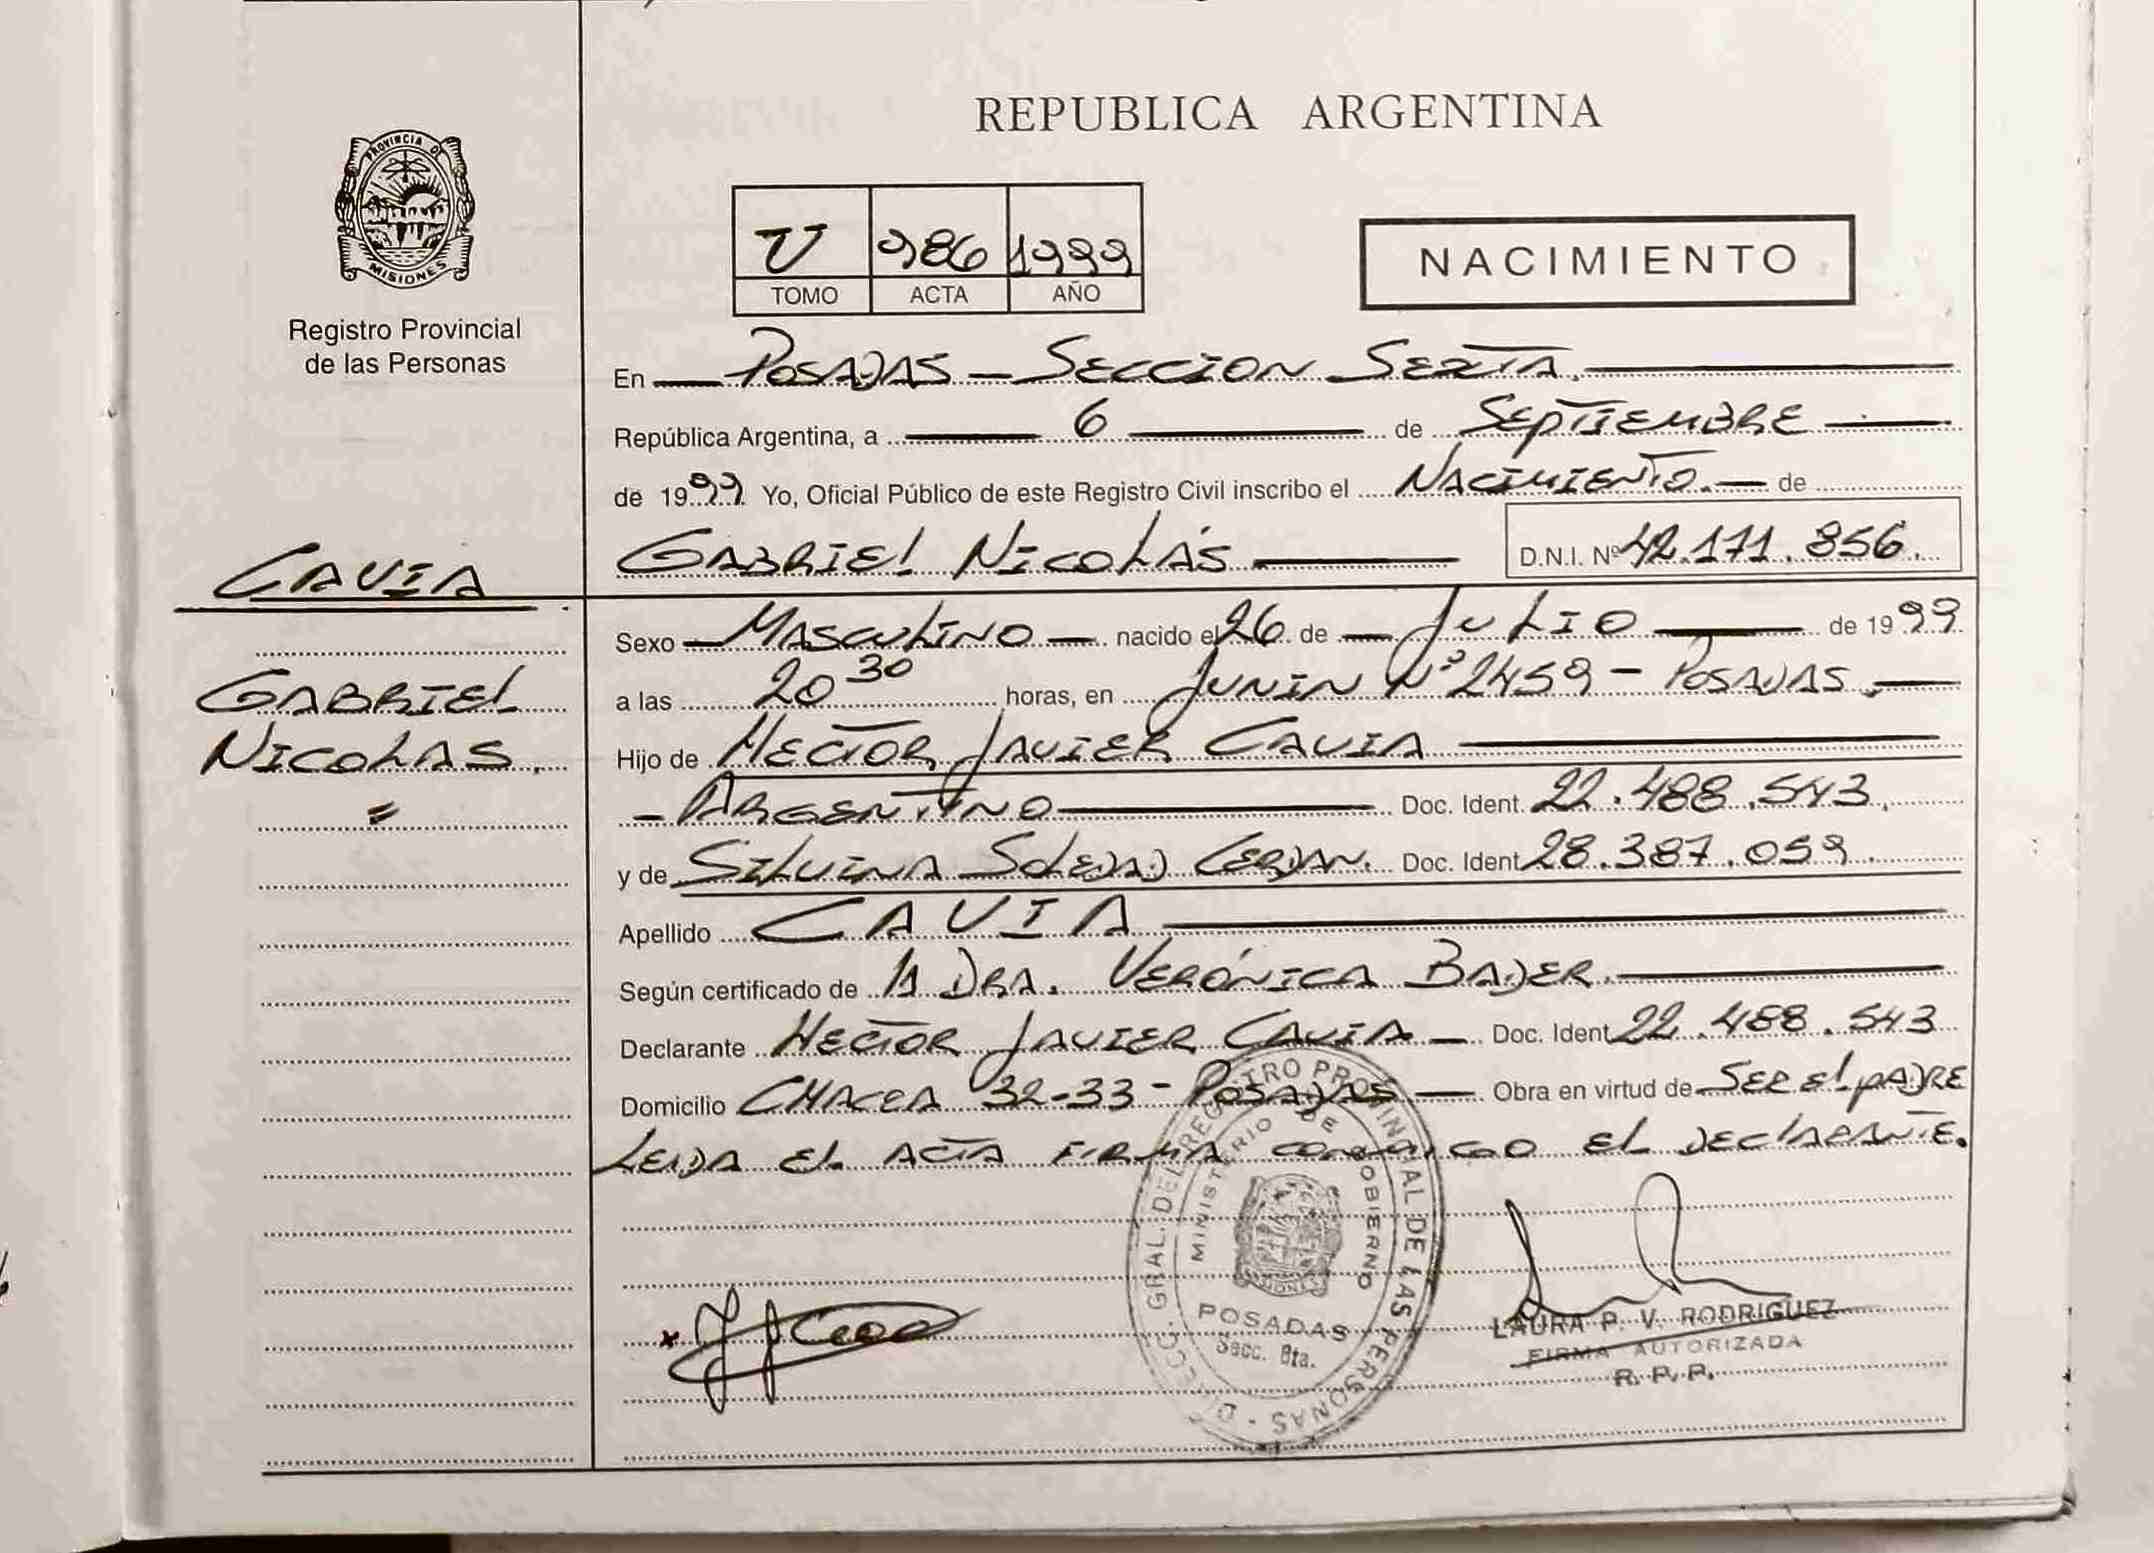 REPUBLICA ARGENTINA
PROVINCIA DE
MISIONES
Registro Provincial
de las Personas
U 986 1999
TOMO ACTA AÑO
NACIMIENTO
En Posadas - Seccion Sexta.
República Argentina, a 6 de Septiembre
de 1999 Yo, Oficial Público de este Registro Civil inscribo el Nacimiento. de
Gabriel Nicolás D.N.I. Nº 42.171.856.
CAVIA
Gabriel
Nicolas.
Sexo Masculino nacido el 26 de Julio de 1999
a las 20 30 horas, en Junin Nº 2459 - Posadas.
Hijo de Hector Javier Cavia
- Argentino Doc. Ident. 22.488.543.
y de Silvina Soledad Cerdan. Doc. Ident 28.387.059.
Apellido CAVIA
Según certificado de la Dra. Verónica Bader.
Declarante Hector Javier Cavia - Doc. Ident 22.488.543
Domicilio Chacra 32-33 - Posadas Obra en virtud de Ser el padre
Leida el acta firma conmigo el declarante.
DIRECC. GRAL. DEL REGISTRO PROVINCIAL DE LAS PERSONAS -
MINISTERIO DE GOBIERNO
MISIONES
POSADAS
Secc. 6ta.
LAURA P. V. RODRIGUEZ
FIRMA AUTORIZADA
R. P. P.